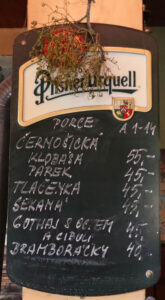 Pilsner Urquell
PORCE A 1-14
ČERNOŠICKÁ
KLOBÁSA 55,-
PÁREK 45,-
TLAČENKA 45,-
SEKANÁ 45,-
GOTHAJ S OCTEM 45,-
A CIBULÍ
BRAMBORÁČKY 40,-